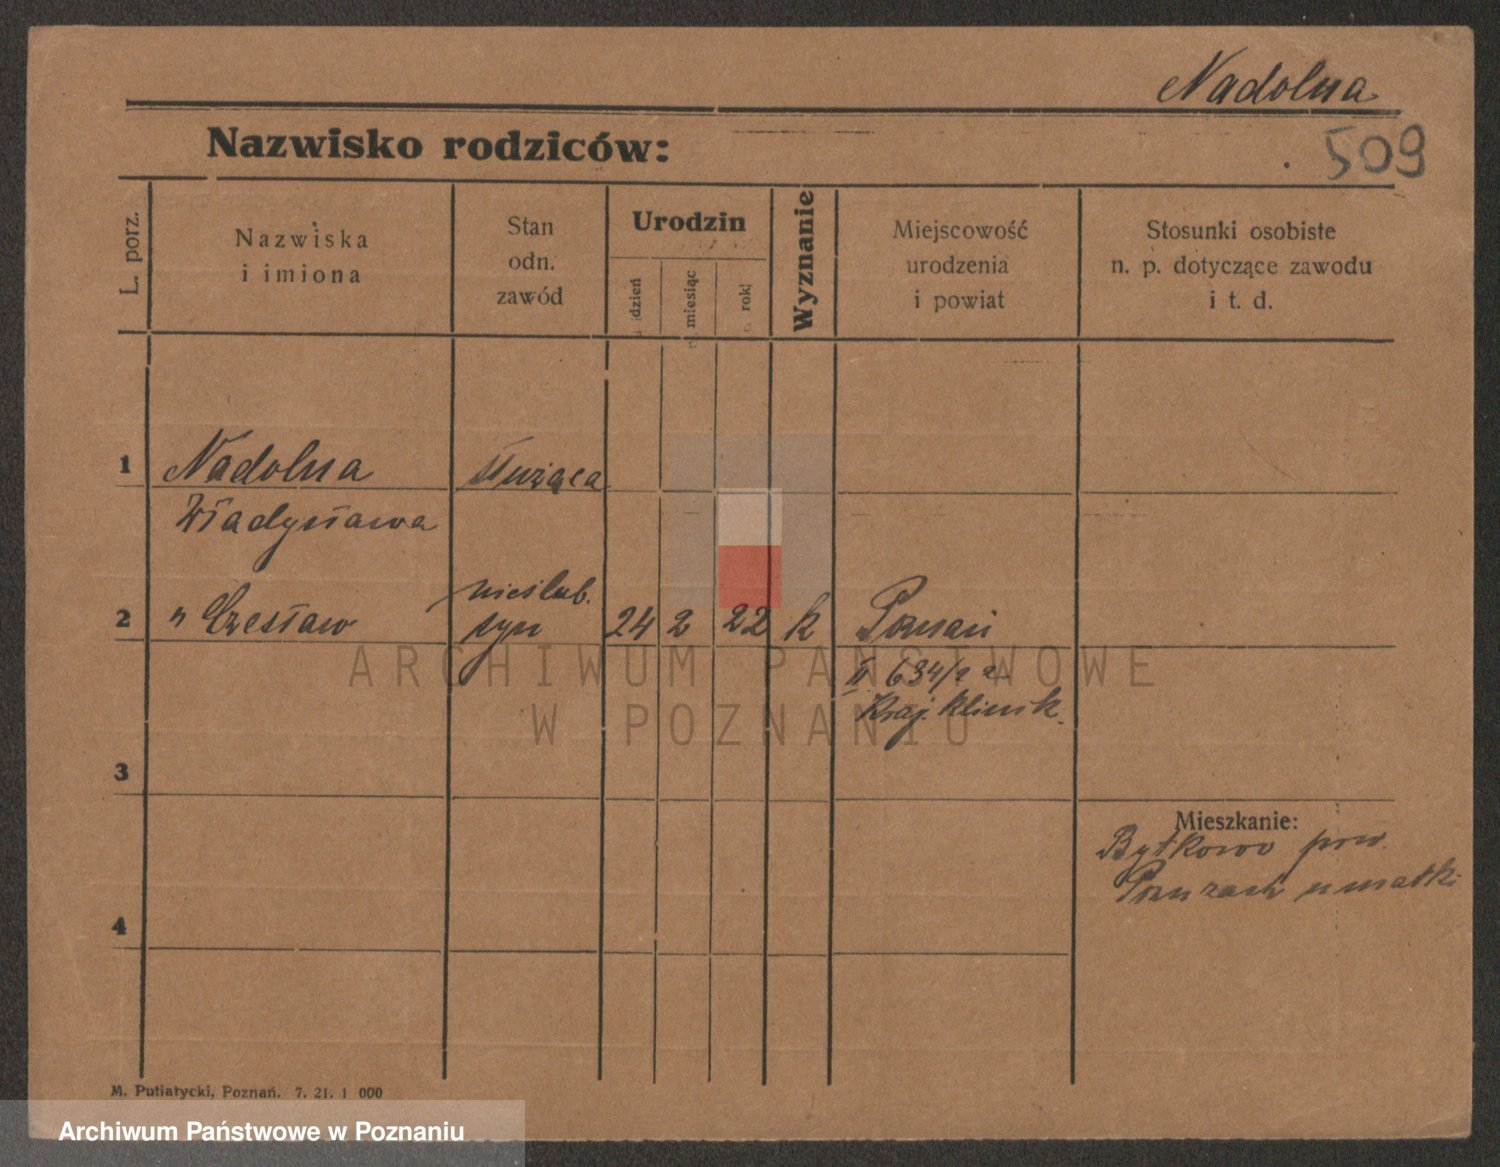 Nadolna
Nazwisko rodziców:
509
L. porz.
Nazwiska
i imiona
Stan
odn.
zawód
Urodzin
dzień
miesiąc
rok
Wyznanie
Miejscowość
urodzenia
i powiat
Stosunki osobiste
n. p. dotyczące zawodu
i t. d.
1 Nadolna służąca
Władysława
nieślub.
2 " Czesław syn 24 2 22 k Poznań
II 634/22
Kraj. Klinik.
ARCHIWUM PAŃSTWOWE
W POZNANIU
3
Mieszkanie:
Bytkowo pow.
Pozn zach u matki
4
M. Putiatycki, Poznań. 7. 21. 1 000
Archiwum Państwowe w Poznaniu